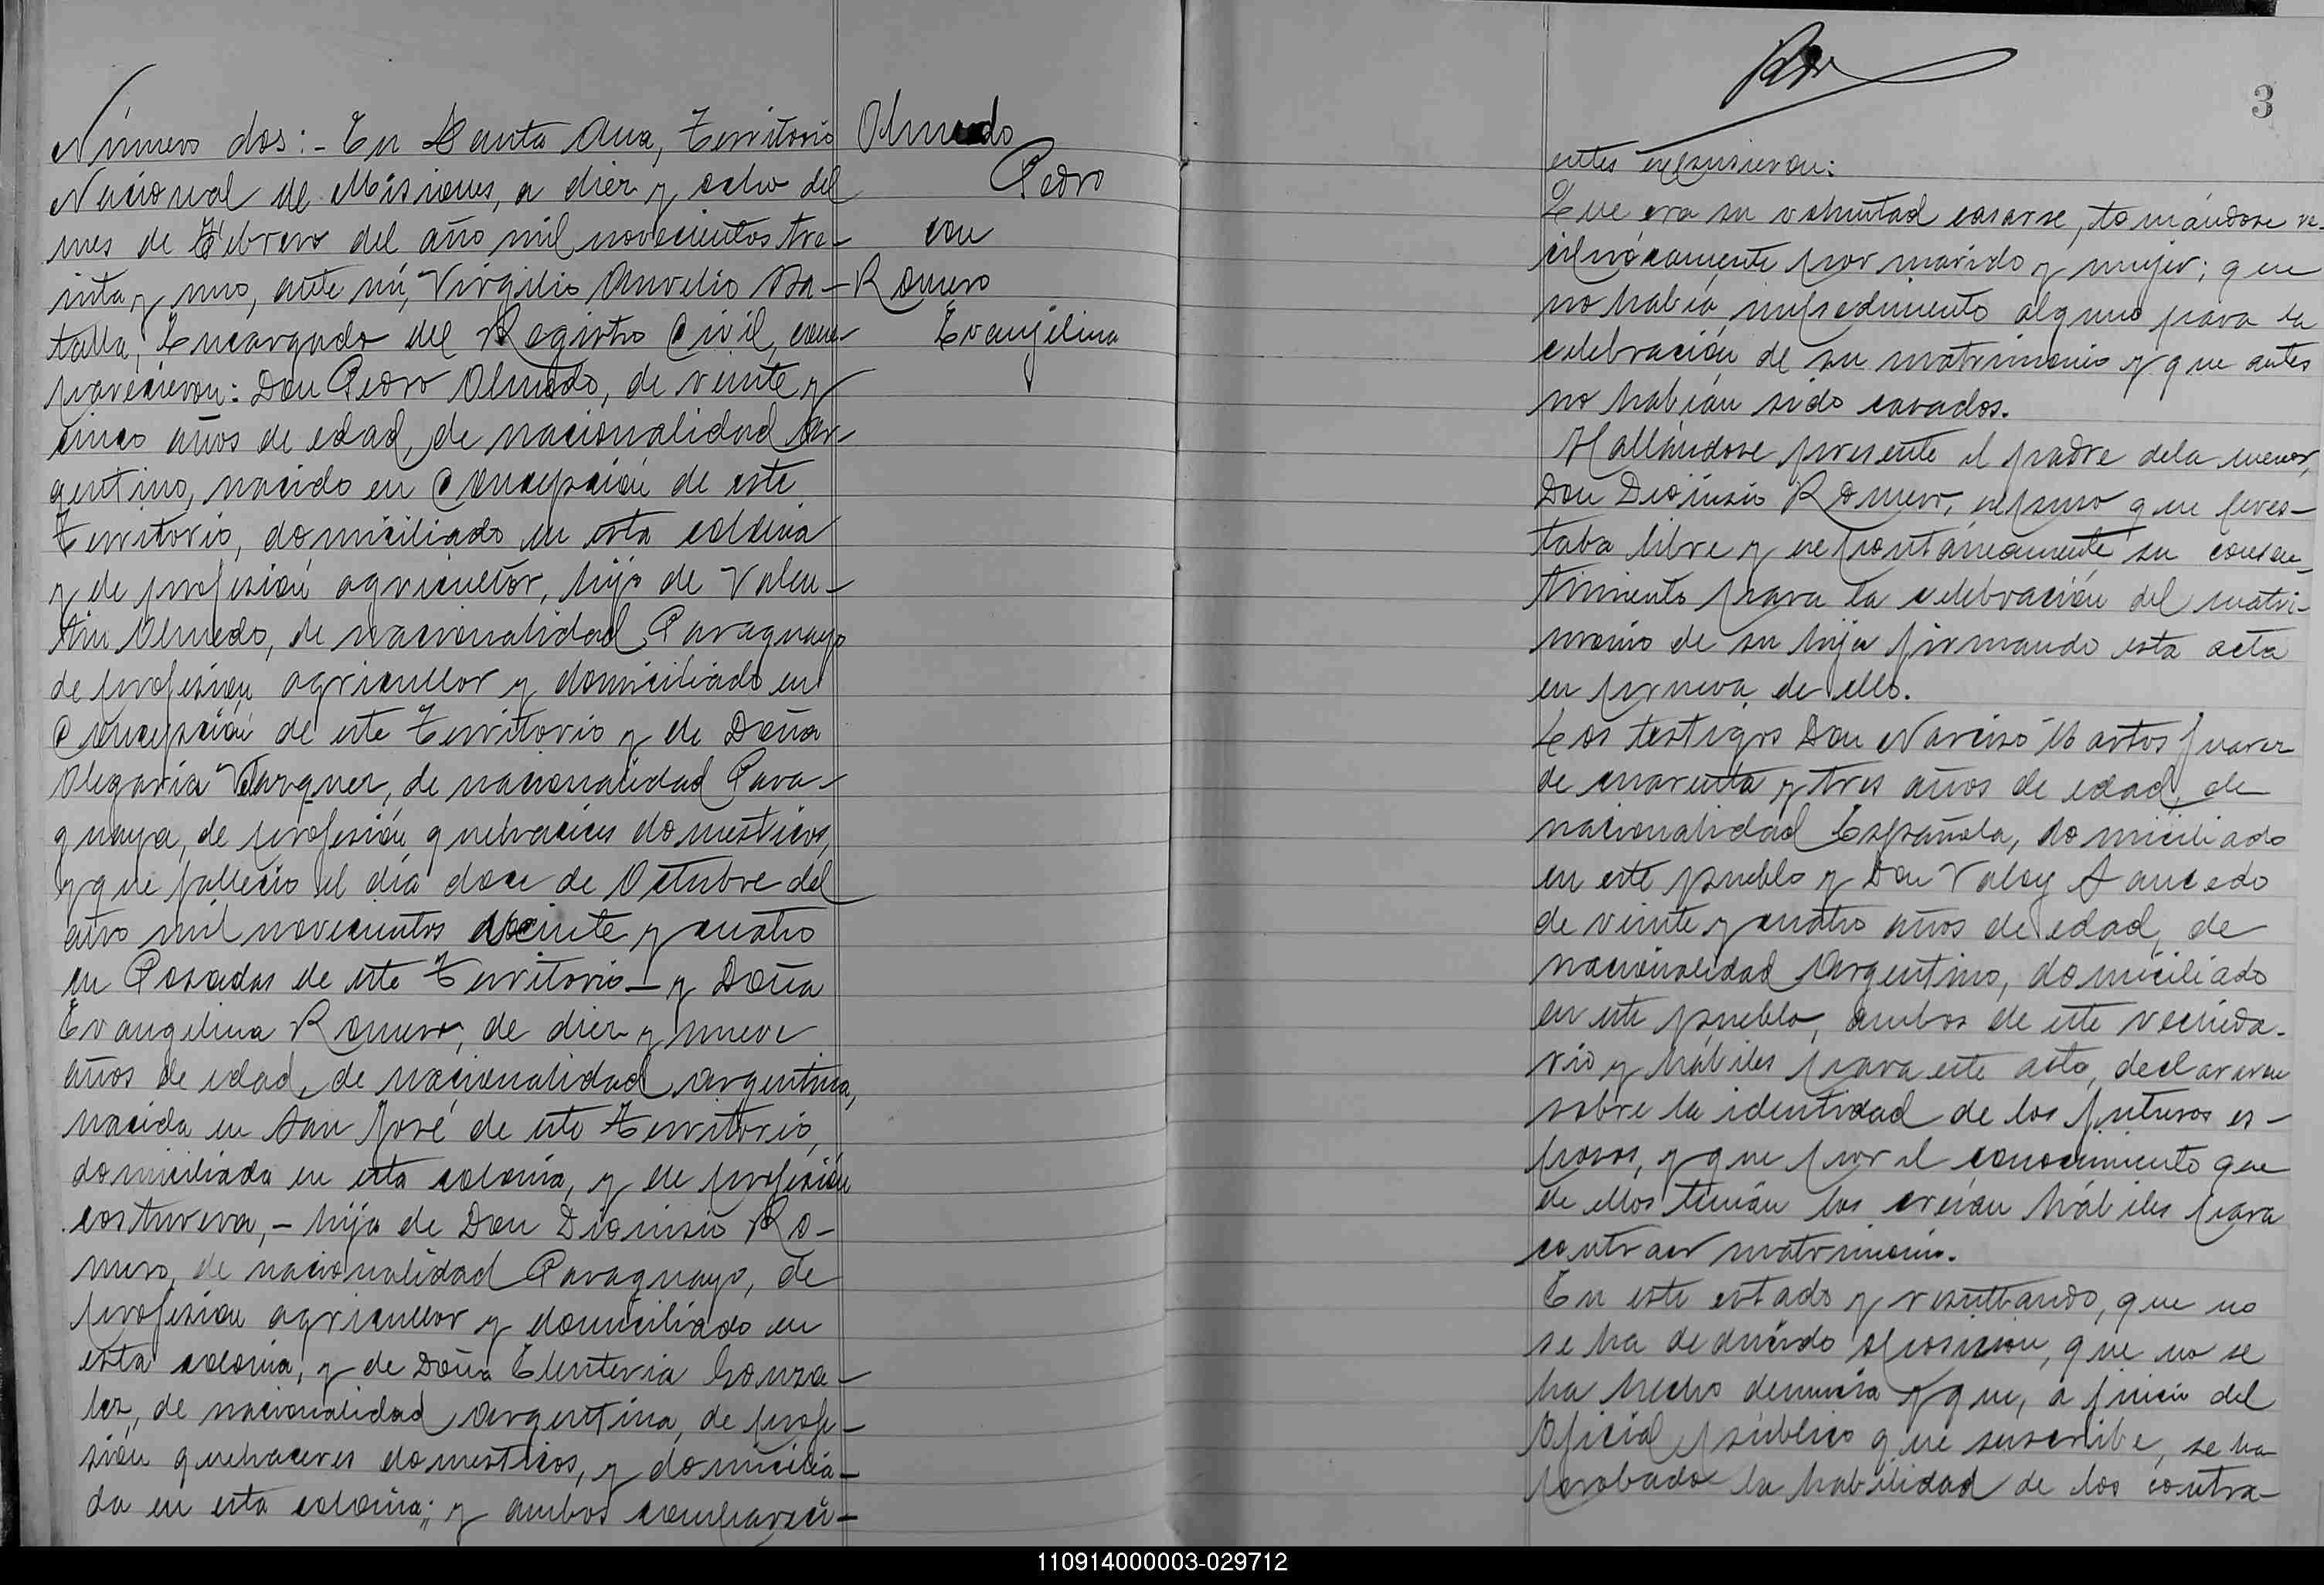 Número dos:- En Santa Ana, Territorio
Nacional de Misiones, a diez y ocho del
mes de Febrero del año mil novecientos tre-
inta y uno, ante mí, Virgilio Aurelio Ba-
talla, Encargado del Registro Civil, com-
parecieron: Don Pedro Olmedo, de veinte y
cinco años de edad, de nacionalidad Ar-
gentino, nacido en Concepción de este
Territorio, domiciliado en esta colonia
y de profesión agricultor, hijo de Valen-
tin Olmedo, de nacionalidad Paraguayo
de profesion agricultor y domiciliado en
Concepción de este Territorio y de Doña
Olegaria Vazquez, de nacionalidad Para-
guaya, de profesión quehaceres domesticos,
y que fallecio el día doce de Octubre del
año mil novecientos veinte y cuatro
en Posadas de este Territorio - y Doña
Evangelina Romero, de diez y nueve
años de edad, de nacionalidad Argentina,
nacida en San José de este Territorio,
domiciliada en esta colonia, y de profesión
costurera, - hija de Don Dionisio Ro-
mero, de nacionalidad Paraguayo, de
profesion agricultor y domiciliado en
esta colonia, y de Doña Eleuteria Gonza-
lez, de nacionalidad Argentina, de profe-
sión quehaceres domesticos, y domicilia-
da en esta colonia; y ambos compareci-
Olmedo
Pedro
con
Romero
Evangelina
3
entes expusieron:
Que era su voluntad casarse, tomándose re-
ciprócamente por marido y mujer; que
no había impedimento alguno para la
celebración de su matrimonio y que antes
no habían sido casados.
Hallándose presente el padre dela menor,
Don Dionisio Romero, expuso que pres-
taba libre y expontáneamente su consen-
timiento para la celebración del matri-
monio de su hija firmando esta acta
en prueva de ello.
Los testigos Don Narciso Martos Juarez
de cuarenta y tres años de edad, de
nacionalidad Española, domiciliado
en este pueblo y Don Valoy Saucedo
de veinte y cuatro años de edad, de
nacionalidad Argentino, domiciliado
en este pueblo, ambos de este vecinda-
rio y hábiles para este acto, declararon
sobre la identidad de los futuros es-
posos, y que por el conocimiento que
de ellos tenían los creían hábiles para
contraer matrimonio.
En este estado y resultando, que no
se ha deducido oposicion, que no se
ha hecho denuncia y que, a juicio del
Oficial público que suscribe, se ha
probado la habilidad de los contra-
110914000003-029712